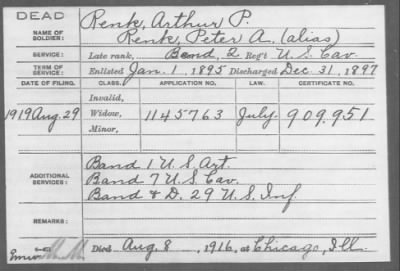 DEAD
NAME OF SOLDIER: Renk, Arthur P.
Renk, Peter A. (alias)
SERVICE: Late rank, Band, 2 Reg't U.S. Cav.
TERM OF SERVICE: Enlisted Jan. 1, 1895 Discharged Dec. 31, 1897
DATE OF FILING. CLASS. APPLICATION NO. LAW. CERTIFICATE NO.
Invalid,
1919 Aug. 29 Widow, 1145763 July. 909.951
Minor,
ADDITIONAL SERVICES: Band 1 U.S. Art.
Band 7 U.S. Cav.
Band & D. 29 U.S. Inf.
REMARKS:
Died Aug. 8, 1916, at Chicago, Ill.